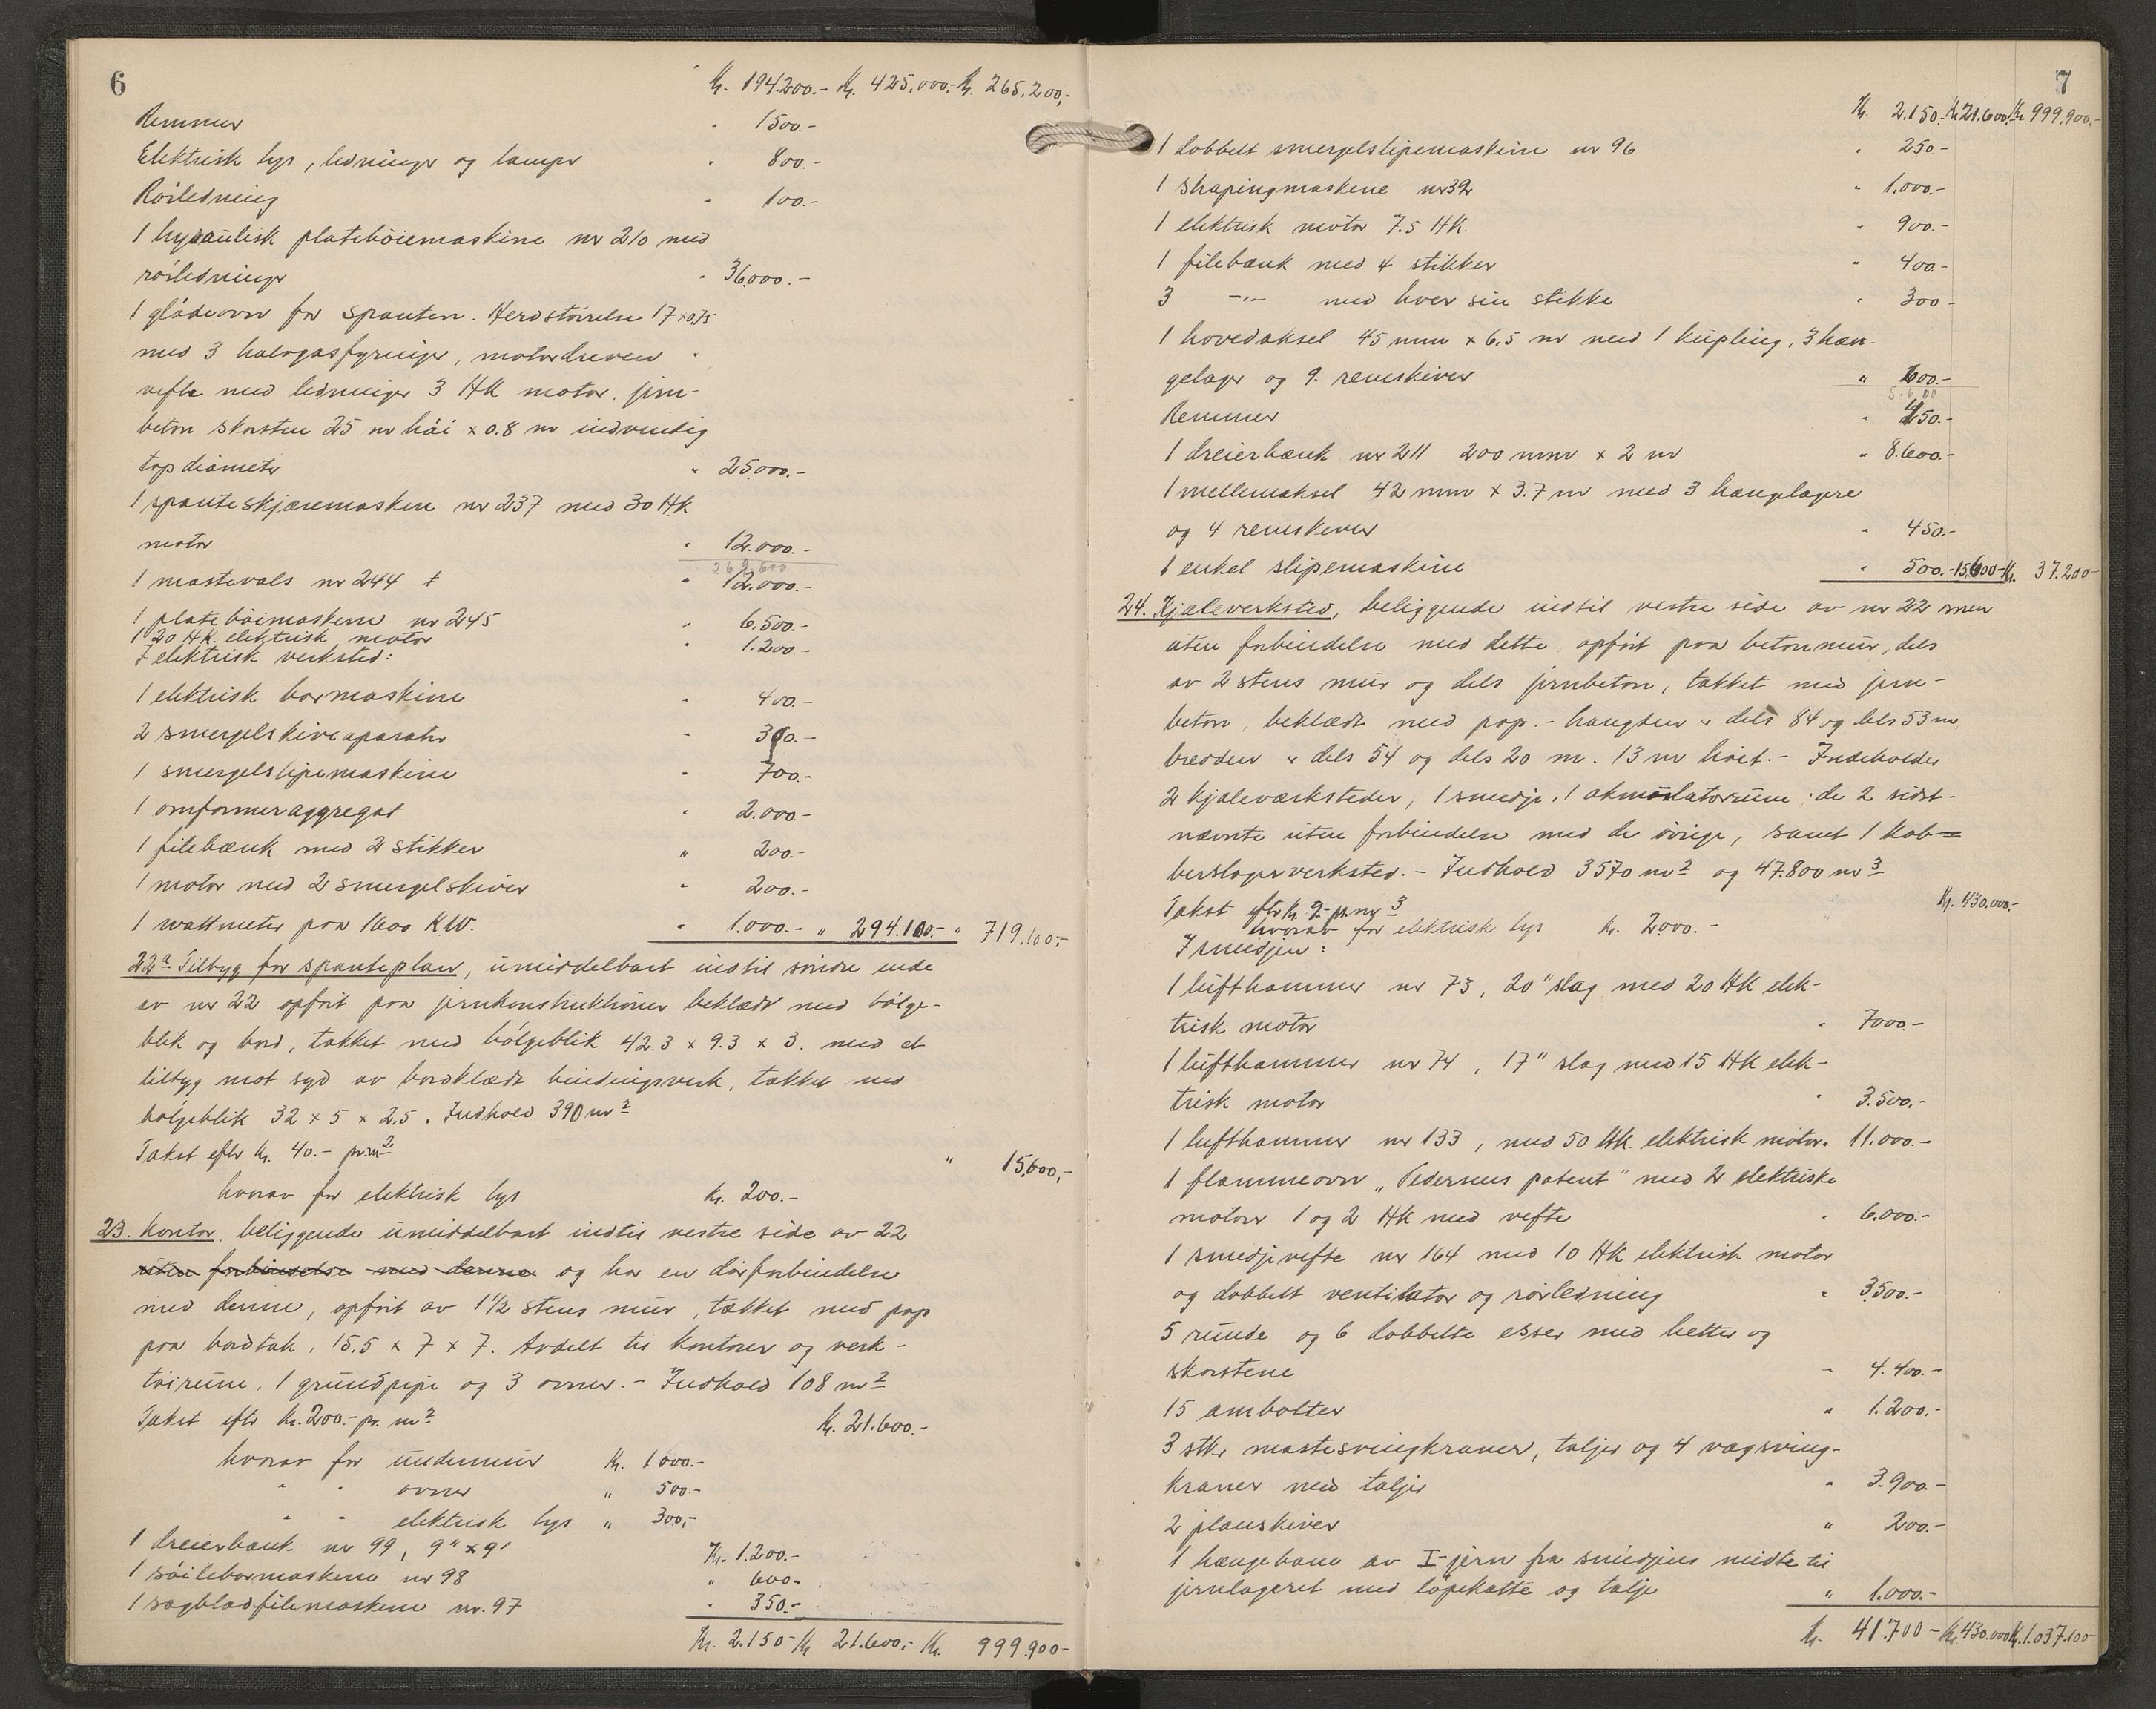 6
Kr. 194.200.- Kr. 425.000.- Kr. 265.200,-
Remmer " 1500.-
Elektrisk lys, ledninger og lamper " 800.-
Rörledning " 100.-
1 hydraulisk platebøiemaskine nr 210 med
rörledninger " 36.000.-
1 glödeovn for spanten. Herdstörrelse 17 x 0,75
med 3 halvgasfyringer, motordreven
vifte med ledninger 3 HK motor. jern-
beton skorsten 25 m höi x 0.8 m indvendig
topdiameter " 25.000.-
1 spanteskjæremaskine nr 237 med 30 HK
motor " 12.000.-
269.600
1 mastevals nr 244 " 12.000.-
1 plateböimaskine nr 245 " 6.500.-
1 20 HK. elektrisk motor " 1.200.-
I elektrisk verksted:
1 elektrisk bormaskine " 400.-
2 smergelskiveaparater " 300.-
1 smergelslipemaskine " 700.-
1 omformeraggregat " 2.000.-
1 filebænk med 2 stikker " 200.-
1 motor med 2 smergelskiver " 200.-
1 wattmeter paa 1600 KW. " 1.000.- " 294.100.- " 719.100,-
22a Tilbyg for spanteplan, umiddelbart indtil søndre ende
av nr 22 opfört paa jernkonstruktioner beklædt med bölge-
blik og bord, tækket med bölgeblik 42.3 x 9.3 x 3. med et
tilbyg mot syd av bordklædt bindingsverk, tækket med
bölgeblik 32 x 5 x 2,5. Indhold 390 m2
Takst efter Kr. 40.- pr. m2 " 15.600,-
hvorav for elektrisk lys Kr. 200.-
23. Kontor, beliggende umiddelbart indtil vestre side av 22
uten forbindelse med denne og har en dörforbindelse
med denne, opfört av 1 1/2 stens mur, tækket med pap
paa bordtak, 15.5 x 7 x 7. Avdelt til kontorer og verk-
töirum, 1 grundpipe og 3 ovner.- Indhold 108 m2
Takst efter Kr. 200.- pr. m2 Kr. 21.600.-
hvorav for undermur Kr. 1000.-
" " ovner " 500.-
" " elektrisk lys " 300,-
1 dreierbænk nr 99, 9" x 9' Kr. 1.200.-
1 söilebormaskine nr 98 " 600.-
1 sagbladfilemaskine nr. 97 " 350.-
Kr. 2.150- Kr. 21.600,- Kr. 999.900-
7
Kr. 2.150.- Kr. 21.600,- Kr. 999.900.-
1 dobbelt smergelslipemaskine nr 96 " 250.-
1 shapingmaskine nr 32 " 1.000.-
1 elektrisk motor 7.5 HK. " 900.-
1 filebænk med 4 stikker " 400.-
3 -"- med hver sin stikke " 300.-
1 hovedaksel 45 mm x 6.5 m med 1 kupling, 3 hæn-
gelager og 9. remskiver " 600.-
5.600
Remmer " 250.-
1 dreierbænk nr 211 200 mm x 2 m " 8.600.-
1 mellemaksel 42 mm x 3.7 m med 3 hængelagere
og 4 remskiver " 450.-
1 enkel slipemaskine " 500.- 15.600- Kr. 37.200-
24. Kjeleverksted, beliggende indtil vestre side av nr 22 men
uten forbindelse med dette, opfört paa betonmur, dels
av 2 stens mur og dels jernbeton, tækket med jern-
beton, beklædt med pap.- Længden er dels 84 og dels 53 m,
bredden er dels 54 og dels 20 m. 13 m höit.- Indeholder
2 kjeleværksteder, 1 smedje, 1 akmulatorrum, de 2 sidst-
nævnte uten forbindelse med de övrige, samt 1 kob-
berslagerverksted.- Indhold 3570 m2 og 47.800 m3
Takst efter Kr. 9.- pr. m3 Kr. 430.000.-
hvorav for elektrisk lys Kr. 2.000.-
I smedjen:
1 lufthammer nr 73, 20" slag med 20 HK elek-
trisk motor " 7000.-
1 lufthammer nr 74, 17" slag med 15 HK elek-
trisk motor " 3.500.-
1 lufthammer nr 133, med 50 HK. elektrisk motor. 11.000.-
1 flammeovn "Pedersens patent" med 2 elektriske
motorer 1 og 2 HK med vifte " 6.000.-
1 smedjevifte nr 164 med 10 HK elektrisk motor
og dobbelt ventilator og rörledning " 3.500.-
5 runde og 6 dobbelte esser med hetter og
skorstene " 4.400.-
15 ambolter " 1.200.-
3 stkr mastesvingkraner, taljer og 4 vægsving-
kraner med taljer " 3.900.-
2 planskiver " 200.-
1 hængebane av I-jern fra smidjens midte til
jernlageret med löpekatte og talje " 1.000.-
Kr. 41.700- Kr. 430.000 Kr. 1.037.100-